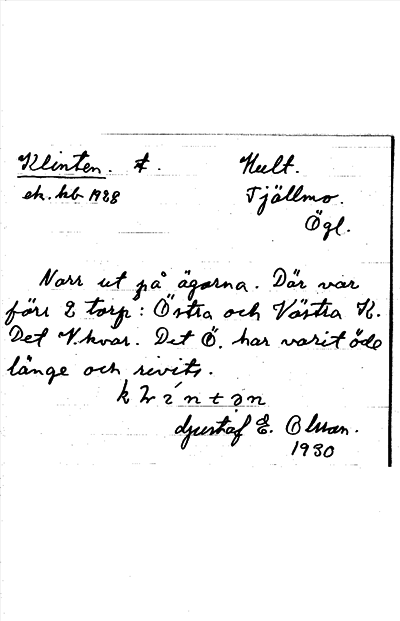 Klinten. t. Hult.
ek. kb 1928 Tjällmo.
Ögl.
Norr ut på ägorna. Där var
förr 2 torp: Östra och Västra K.
Det V. kvar. Det Ö. har varit öde
länge och rivits.
klíntən
Gustaf E. Olsson.
1930